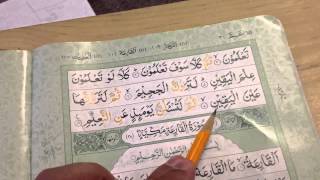 تَعْلَمُونَ ۝ ثُمَّ كَلَّا سَوْفَ تَعْلَمُونَ ۝ كَلَّا لَوْ تَعْلَمُونَ
عِلْمَ الْيَقِينِ ۝ لَتَرَوُنَّ الْجَحِيمَ ۝ ثُمَّ لَتَرَوُنَّهَا
عَيْنَ الْيَقِينِ ۝ ثُمَّ لَتُسْأَلُنَّ يَوْمَئِذٍ عَنِ النَّعِيمِ
سُورَةُ الْقَارِعَةِ مَكِّيَّةٌ
الرَّحْمٰنِ الرَّحِيمِ
الْقَارِعَةُ ۝ مَا الْقَارِعَةُ